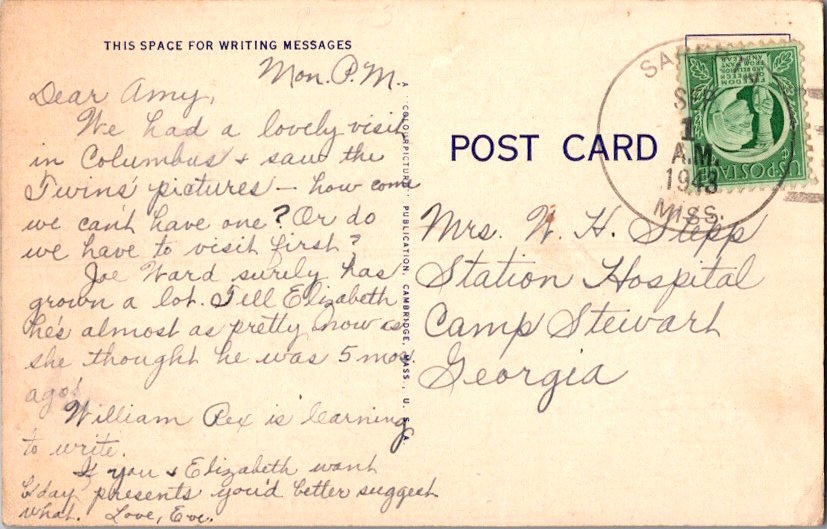 THIS SPACE FOR WRITING MESSAGES
Mon. P.M.
Dear Amy,
We had a lovely visit
in Columbus & saw the
Twins' pictures – how come
we can't have one? Or do
we have to visit first?
Joe Ward surely has
grown a lot. Tell Elizabeth
he's almost as pretty now as
she thought he was 5 mos.
ago!
William Rex is learning
to write.
If you & Elizabeth want
b'day presents you'd better suggest
what. Love, Eve.
A COLOURPICTURE PUBLICATION, CAMBRIDGE, MASS., U.S.A.
POST CARD
SEP
1
A.M.
1943
MISS.
FREEDOM
OF SPEECH
AND RELIGION
FROM WANT
AND FEAR
U.S. POSTAGE
Mrs. W. H. Stepp
Station Hospital
Camp Stewart
Georgia